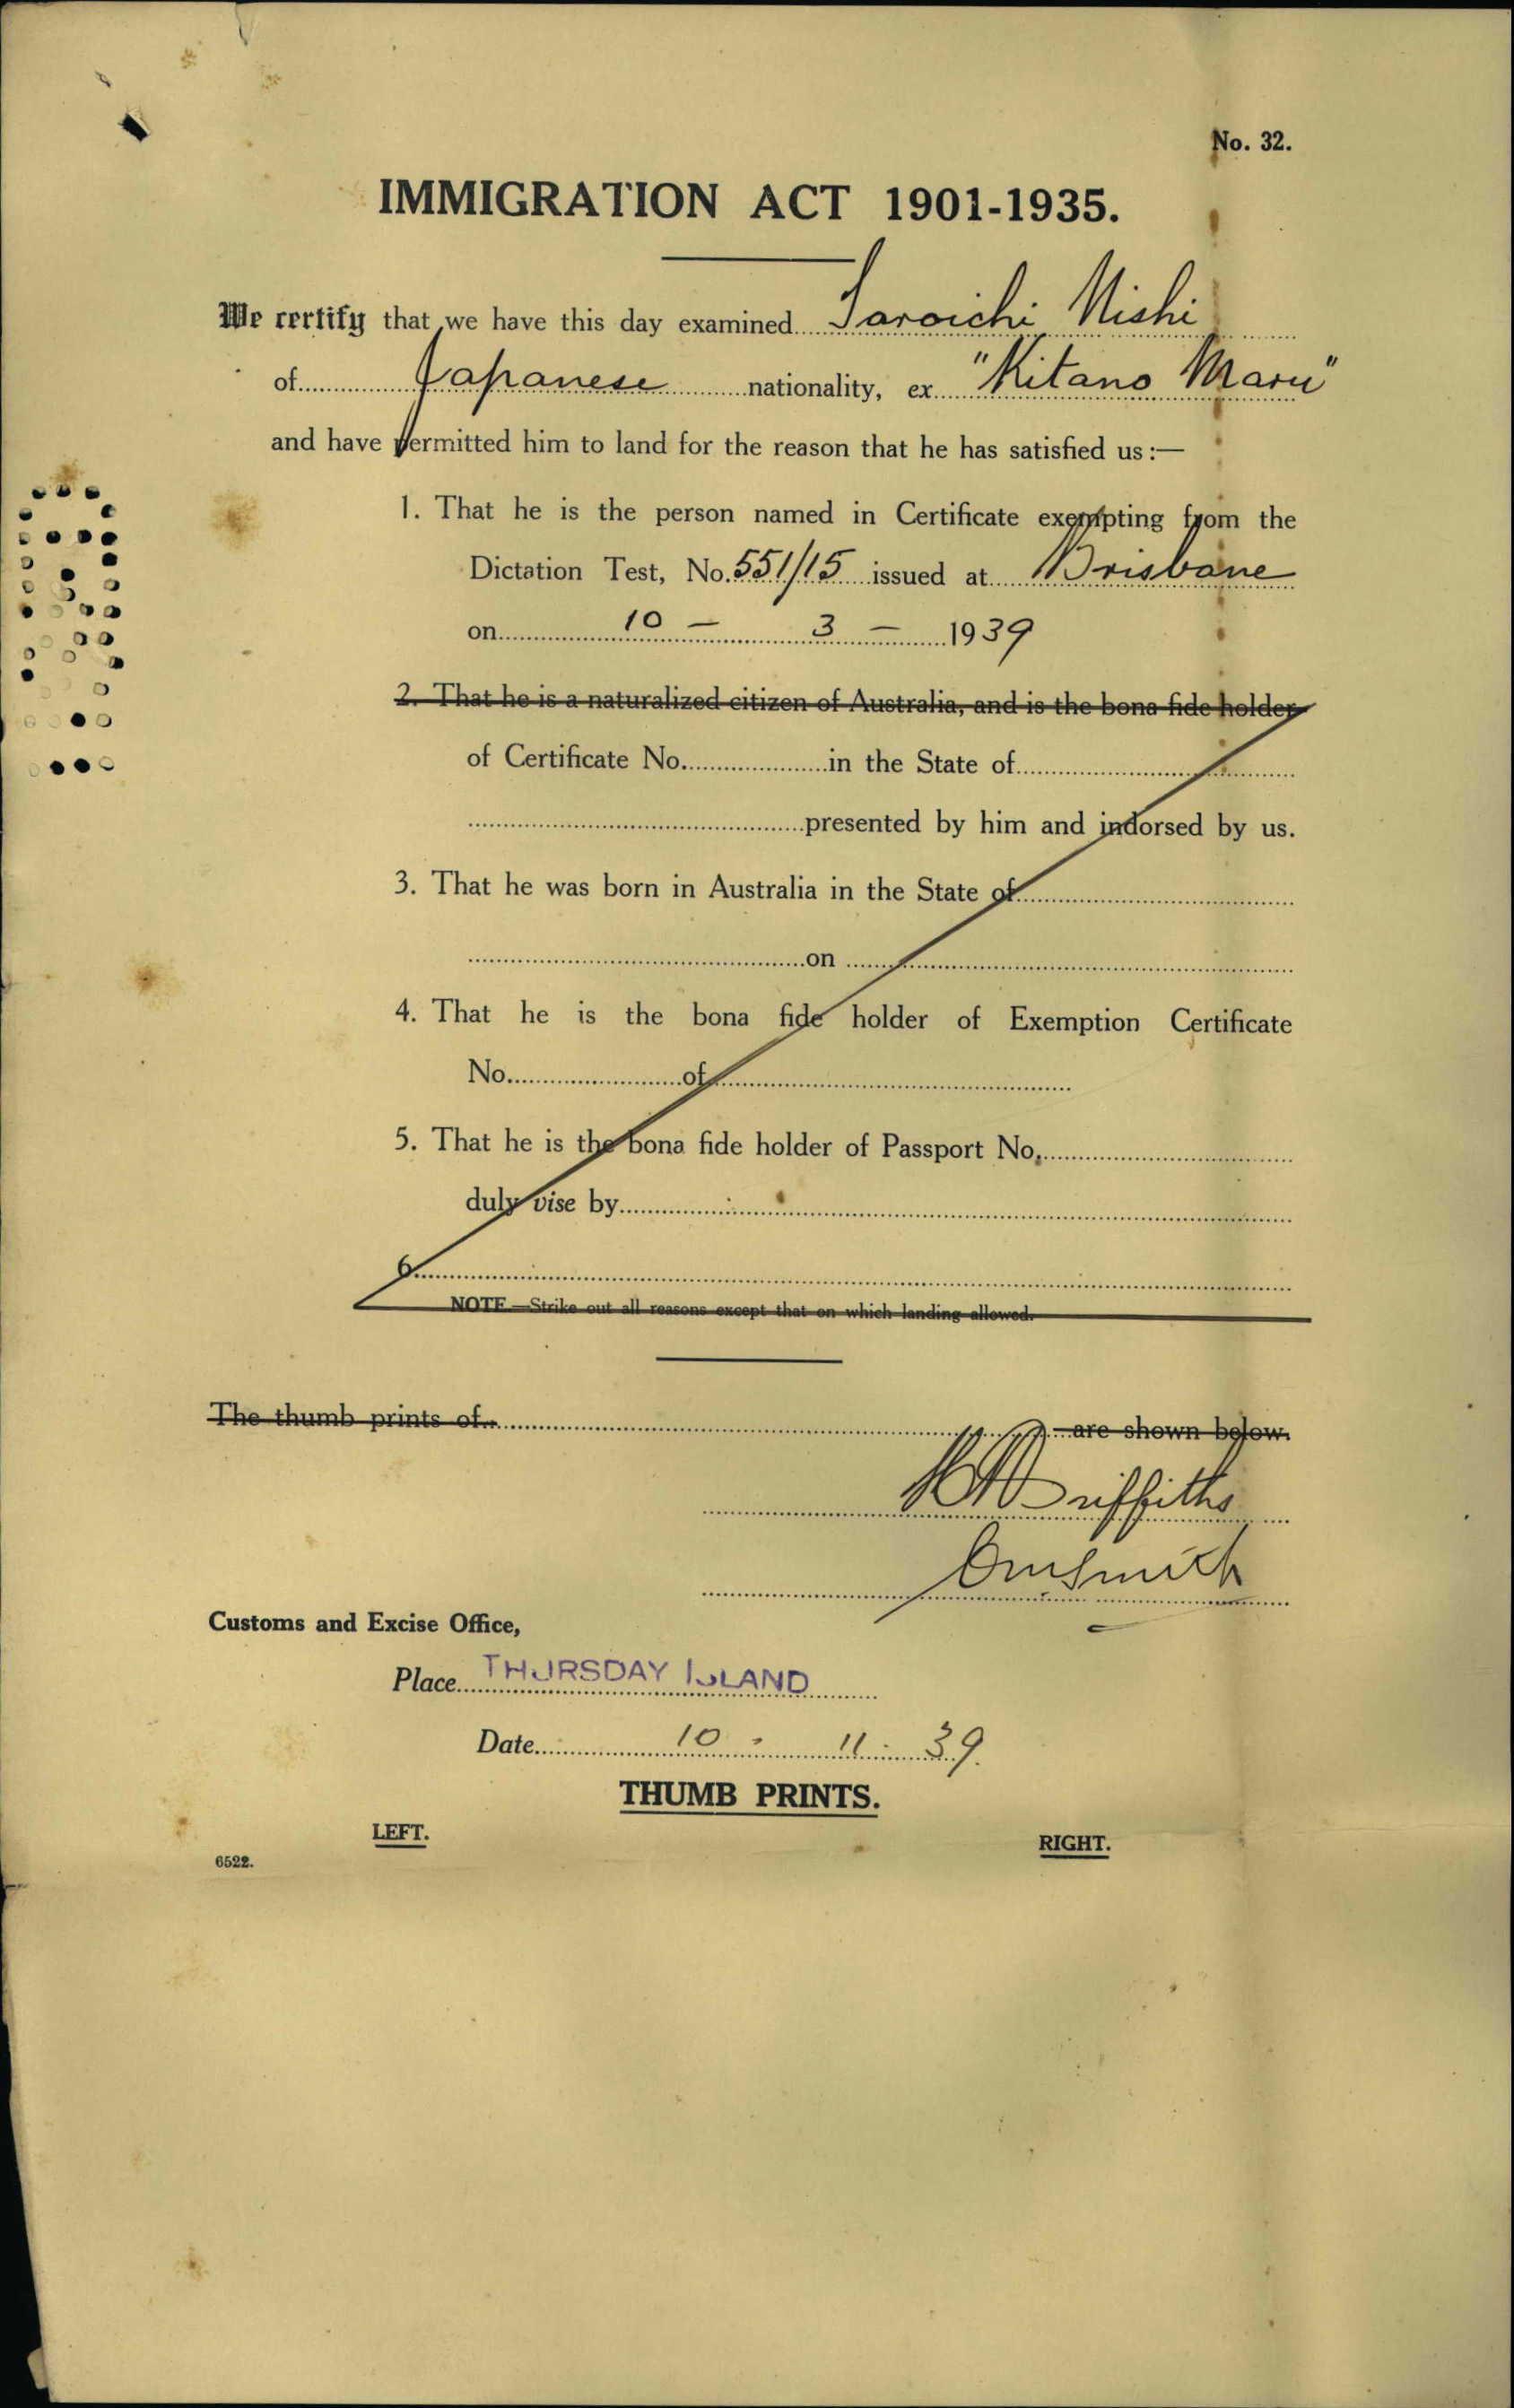 No. 32.
IMMIGRATION ACT 1901-1935.
We certify that we have this day examined Taroichi Nishi
of Japanese nationality, ex "Kitano Maru"
and have permitted him to land for the reason that he has satisfied us:—
1. That he is the person named in Certificate exempting from the
Dictation Test, No. 551/15 issued at Brisbane
on 10 - 3 - 1939
2. That he is a naturalized citizen of Australia, and is the bona fide holder
of Certificate No. in the State of
presented by him and indorsed by us.
3. That he was born in Australia in the State of
on
4. That he is the bona fide holder of Exemption Certificate
No. of
5. That he is the bona fide holder of Passport No.
duly vise by
6.
NOTE—Strike out all reasons except that on which landing allowed.
The thumb prints of are shown below.
Griffiths
Smith
Customs and Excise Office,
Place THURSDAY ISLAND
Date 10 - 11 - 39.
THUMB PRINTS.
LEFT.
RIGHT.
6522.